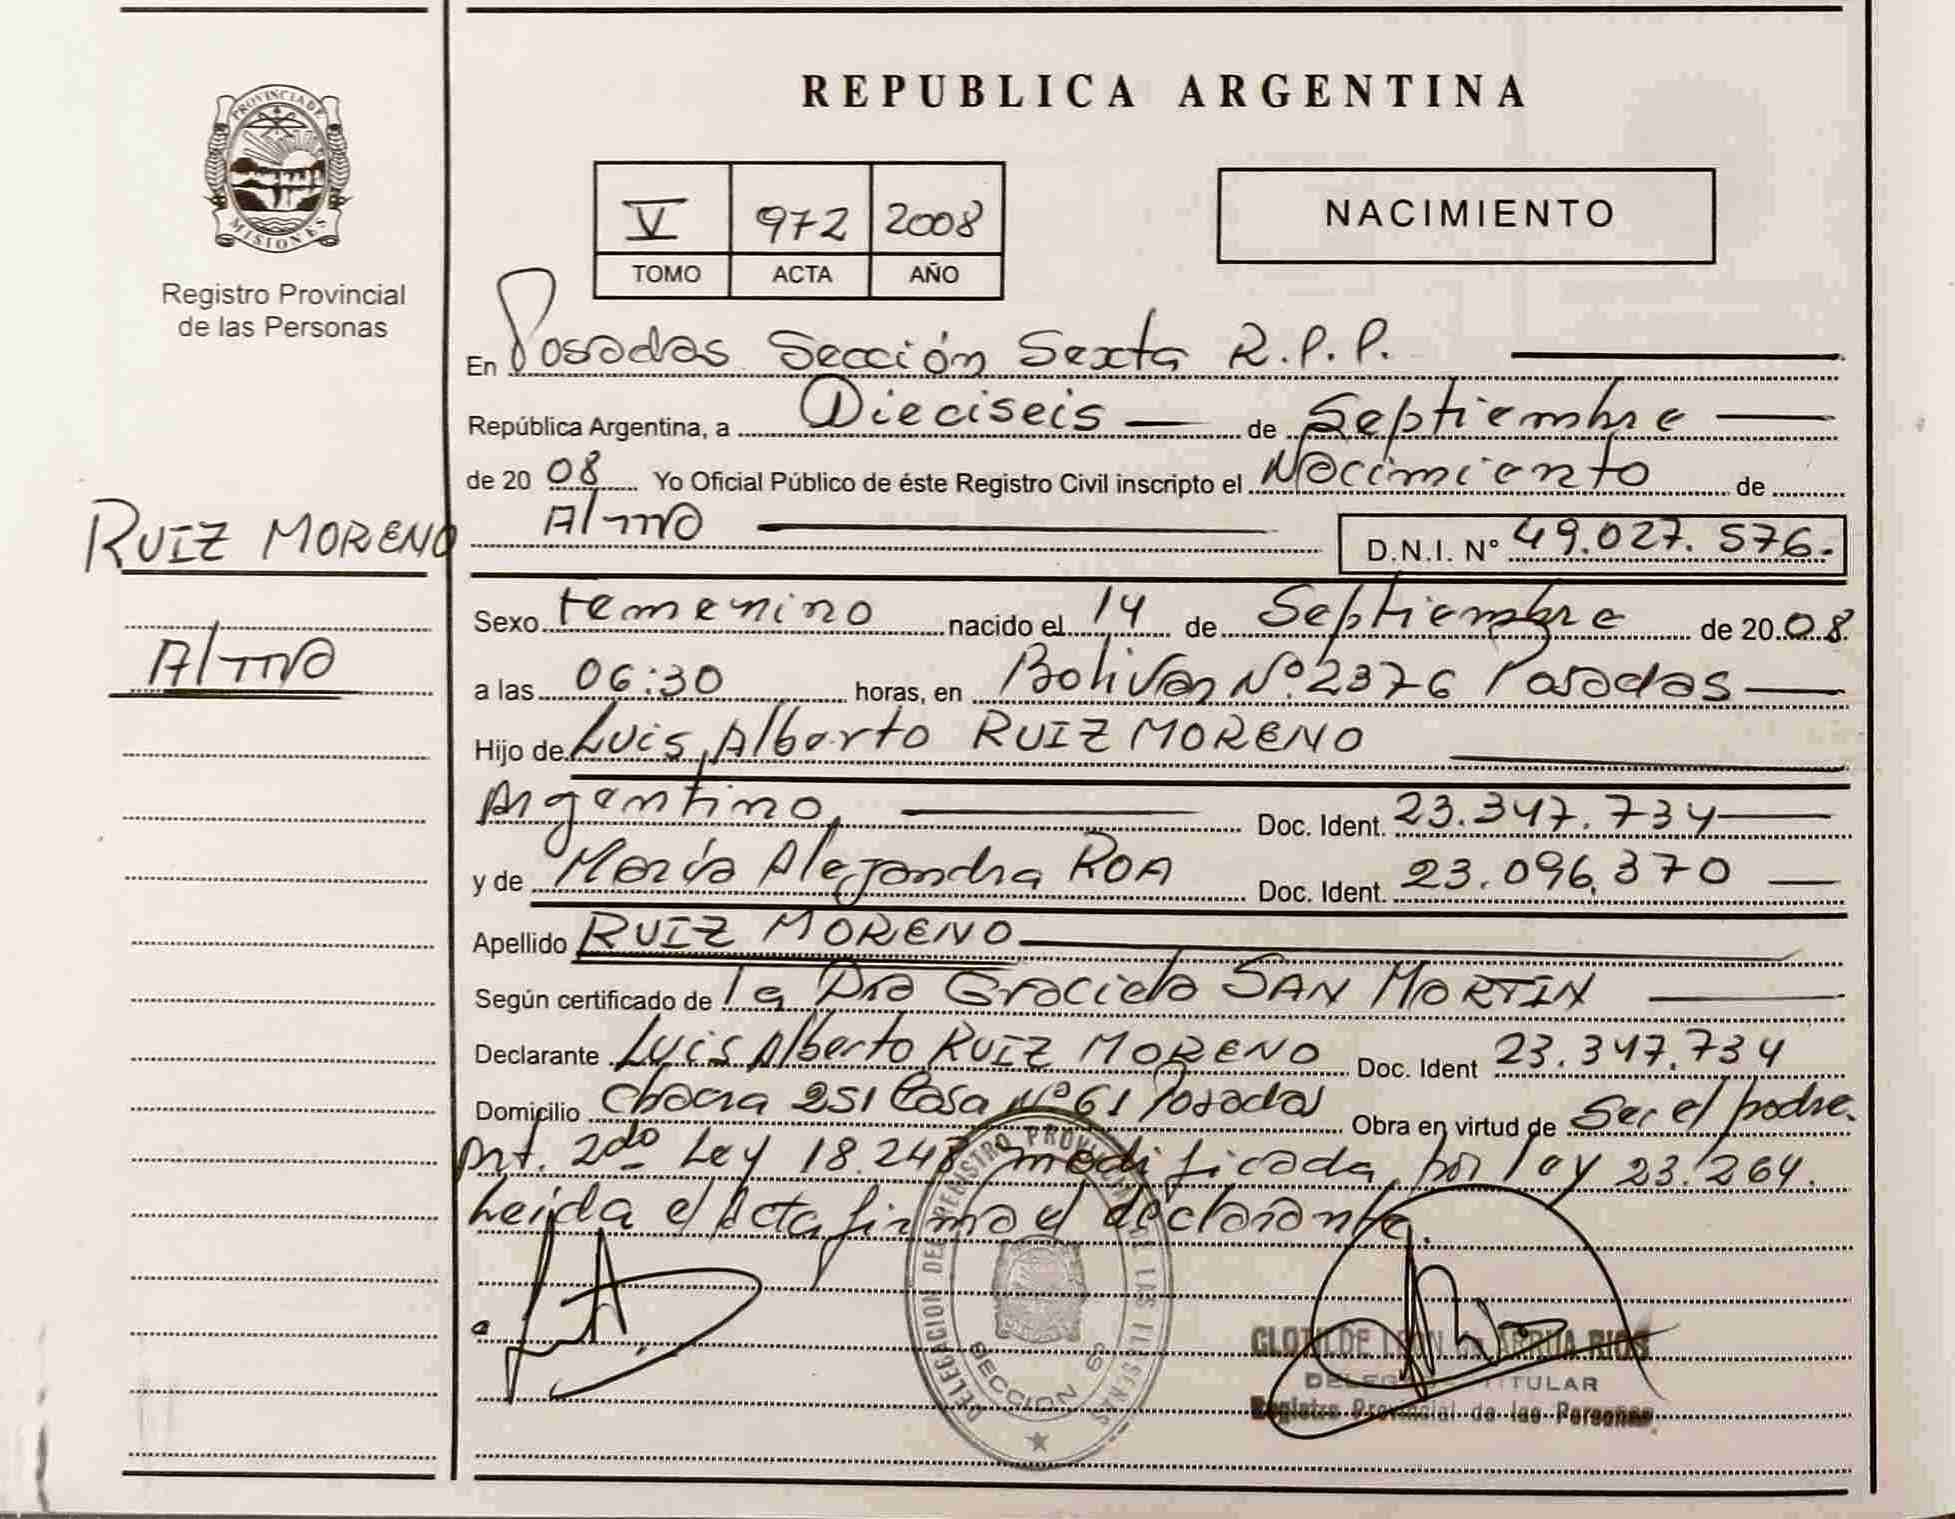 PROVINCIA DE
MISIONES
Registro Provincial
de las Personas
RUIZ MORENO
Alma
REPUBLICA ARGENTINA
V 972 2008
TOMO ACTA AÑO
NACIMIENTO
En Posadas Sección Sexta R.P.P.
República Argentina, a Dieciseis de Septiembre
de 20 08 Yo Oficial Público de éste Registro Civil inscripto el Nacimiento de
Alma D.N.I. N° 49.027.576.
Sexo femenino nacido el 14 de Septiembre de 20 08.
a las 06:30 horas, en Bolivar Nº 2376 Posadas
Hijo de Luis Alberto RUIZ MORENO
Argentino, Doc. Ident. 23.347.734
y de María Alejandra ROA Doc. Ident. 23.096.370
Apellido RUIZ MORENO
Según certificado de la Dra Graciela SAN MARTIN
Declarante Luis Alberto RUIZ MORENO Doc. Ident 23.347.734
Domicilio Chacra 251 Casa Nº 61 Posadas Obra en virtud de Ser el padre.
Art. 2do Ley 18.248 modificada por ley 23.264.
Leida el Acta firma el declarante.
DELEGACION DEL REGISTRO PROVINCIAL DE LAS PERSONAS
SECCION 6º
CLOTILDE LEON de ARRUA RIOS
DELEGADA TITULAR
Registro Provincial de las Personas